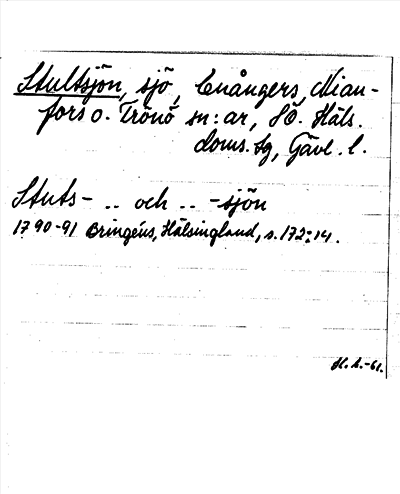 Stultsjön, sjö, Enångers, Nian-
fors o. Trönö sn:ar, SÖ. Häls.
doms. sg, Gävl. l.
Stuts- .. och .. -sjön
1790-91 Bringéus, Hälsingland, s. 172:14.
-61.